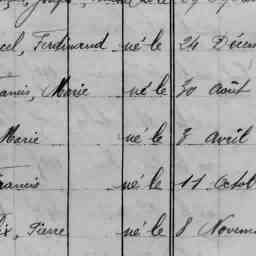 cel, Ferdinand né le 24 Décem
rancis, Marie né le 30 août
Marie né le 3 avril
Francis né le 11 Octob
ix, Pierre né le 8 Novem